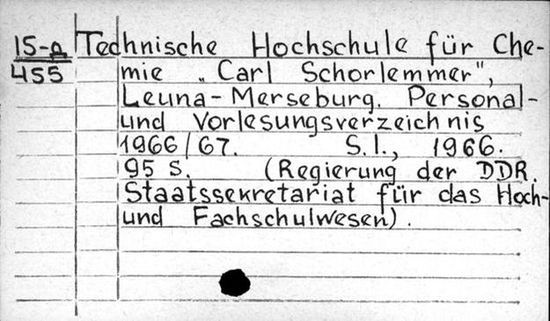 IS-a Technische Hochschule für Che-
455 mie „Carl Schorlemmer",
Leuna-Merseburg. Personal-
und Vorlesungsverzeichnis
1966/67. S.l., 1966.
95 S. (Regierung der DDR.
Staatssekretariat für das Hoch-
und Fachschulwesen).